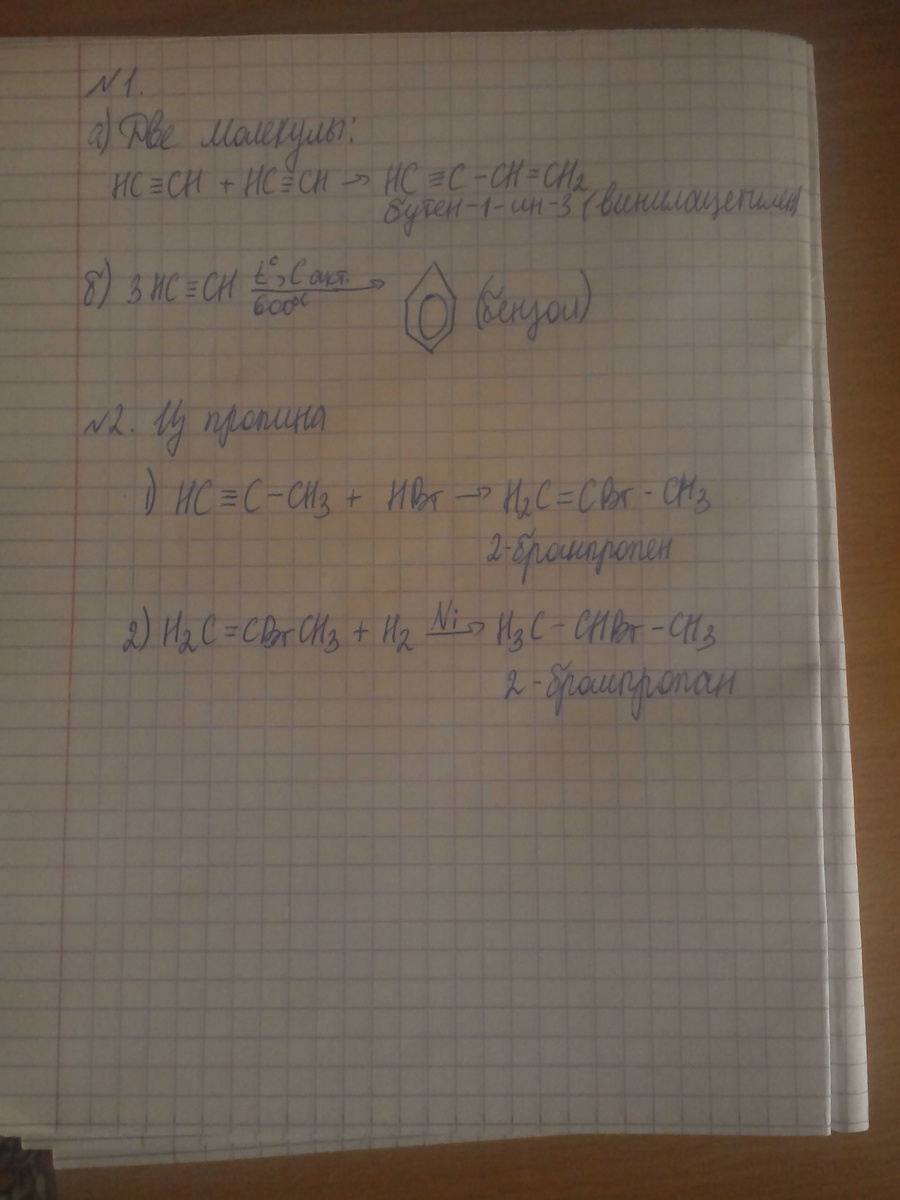 №1.
а) Две молекулы:
HC≡CH + HC≡CH → HC≡C-CH=CH₂
бутен-1-ин-3 (винилацетилен)
б) 3HC≡CH t°, C акт. 600°C → (бензол)
№2. Из пропина
1) HC≡C-CH₃ + HBr → H₂C=CBr-CH₃
2-бромпропен
2) H₂C=CBrCH₃ + H₂ Ni → H₃C-CHBr-CH₃
2-бромпропан